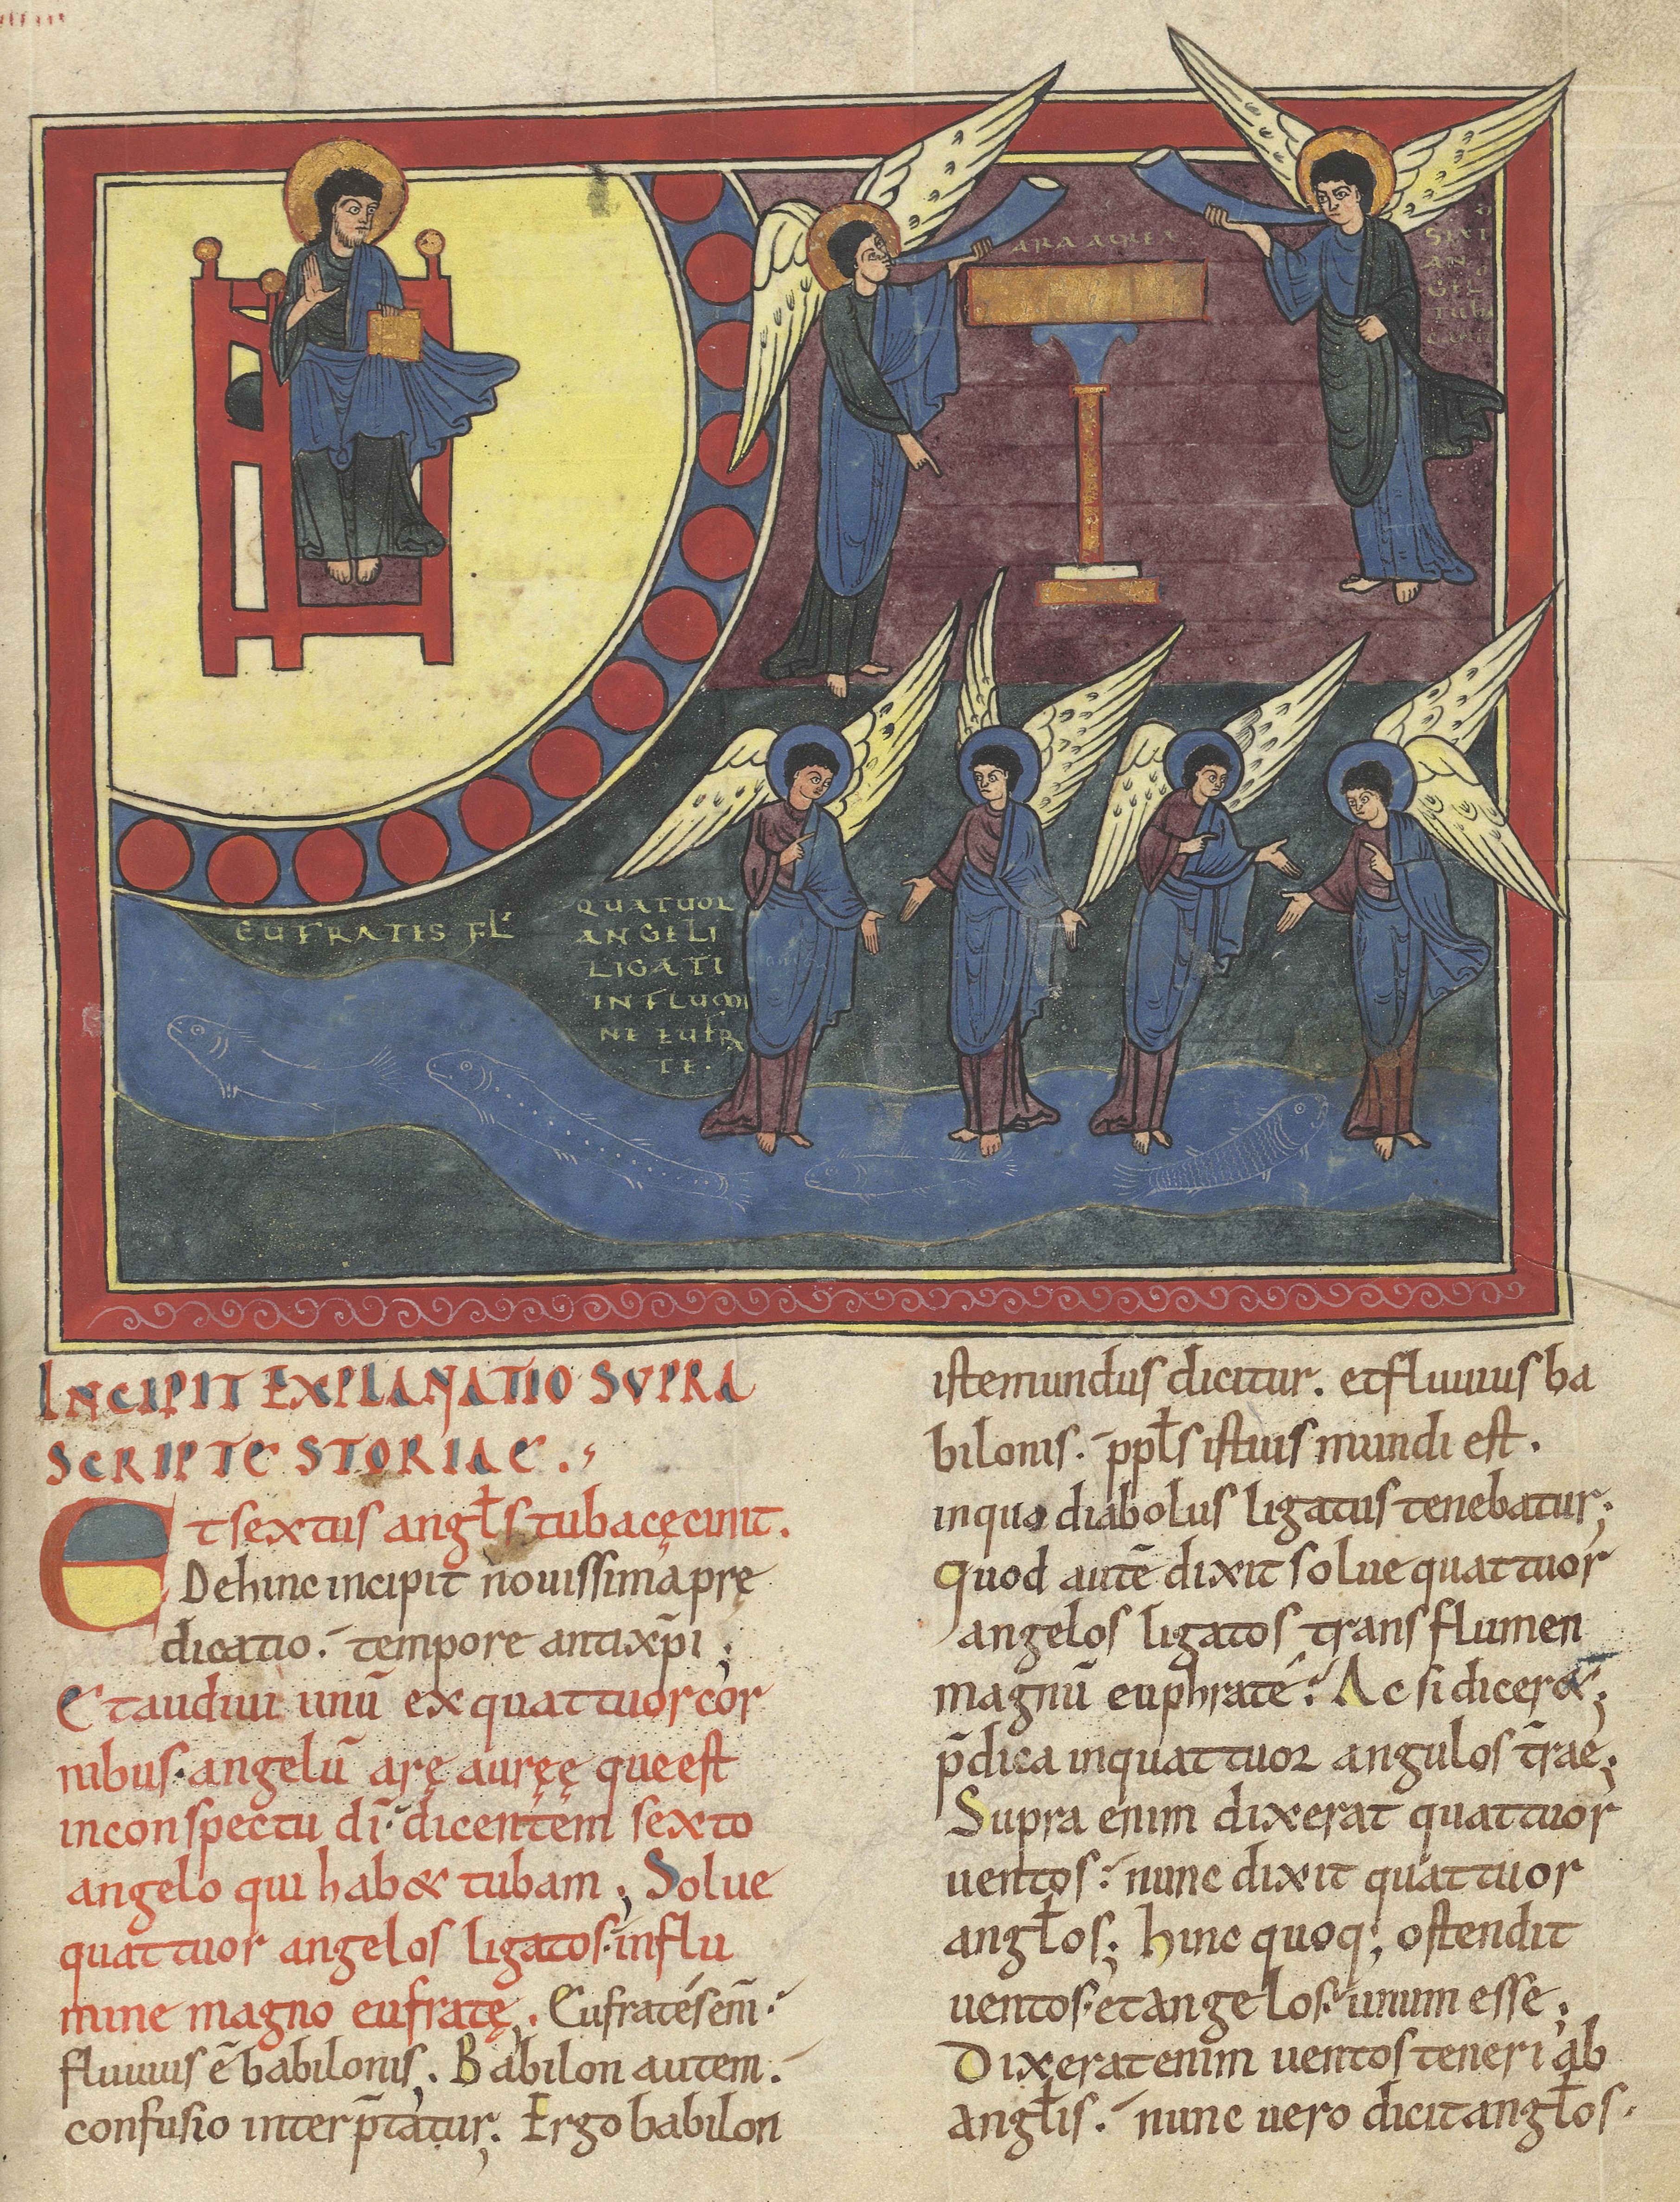 ARA AUREA
SEXT
AN
GEL
TUBA
CECINIT
EUFRATES FL
QUATUOR
ANGELI
LIGATI
IN FLUMI
NE EUFRA
TE.
INCIPIT EXPLANATIO SUPRA
SCRIPTE STORIAE.
Et sextus angłs tuba cęcinit.
Dehinc incipit novissima prę
dicatio. tempore antixp̄i;
Et audivi unū ex quattuor cor
nibus. angelū arę auręę que est
in conspectu dī. dicentem sexto
angelo qui hab& tubam; Solve
quattuor angelos ligatos. in flu
mine magno eufratę. Eufratés enī.
fluvius ē babilonis; Babilon autem.
confusio interp̄tatur; Ergo babilon
iste mundus dicitur. et fluvius ba
bilonis. ppłs istius mundi est.
in quo diabolus ligatus tenebatur;
Quod autē dixit solve quattuor
angelos ligatos trans flumen
magnū euphratē. Ac si dicer&;
p̄dica in quattuor angulos t̄rae;
Supra enim dixerat quattuor
ventos. nunc dixit quattuor
angłos; hinc quoq; ostendit
ventos. et angelos. unum esse;
Dixerat enim ventos teneri ab
angłis. nunc vero dicit angłos.